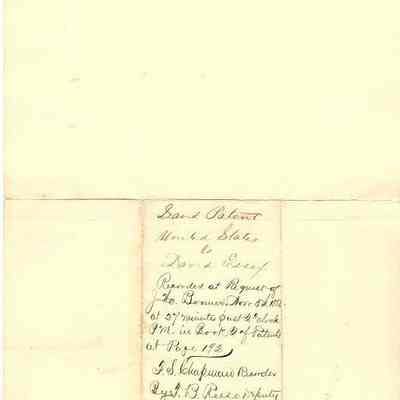 Land Patent
United States
to
David Essex
Recorded at Request of
at 27 minutes past
P.M. in Book of Patents
at Page 192
F. S. Chapman Recorder
By B. Reese Deputy